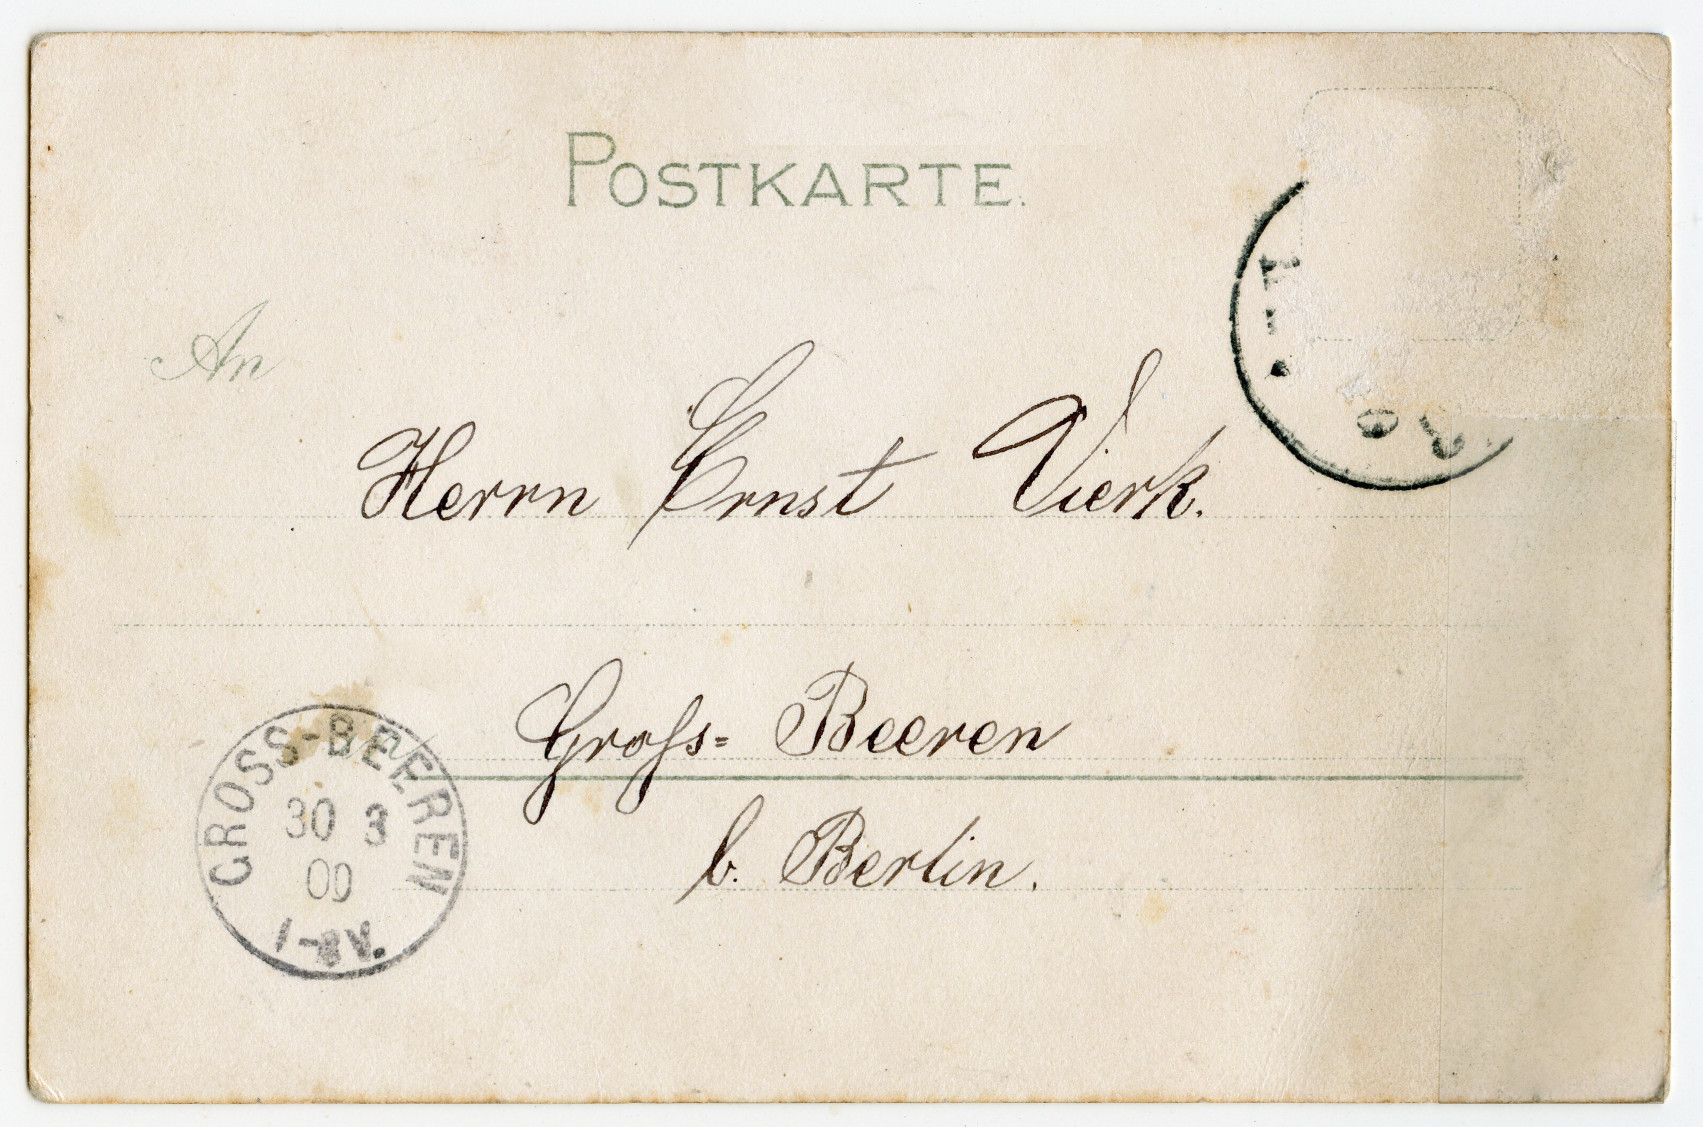 POSTKARTE.
An
Herrn Ernst Vierk.
in
Gross= Beeren
b. Berlin.
GROSS-BEEREN
30 3
00